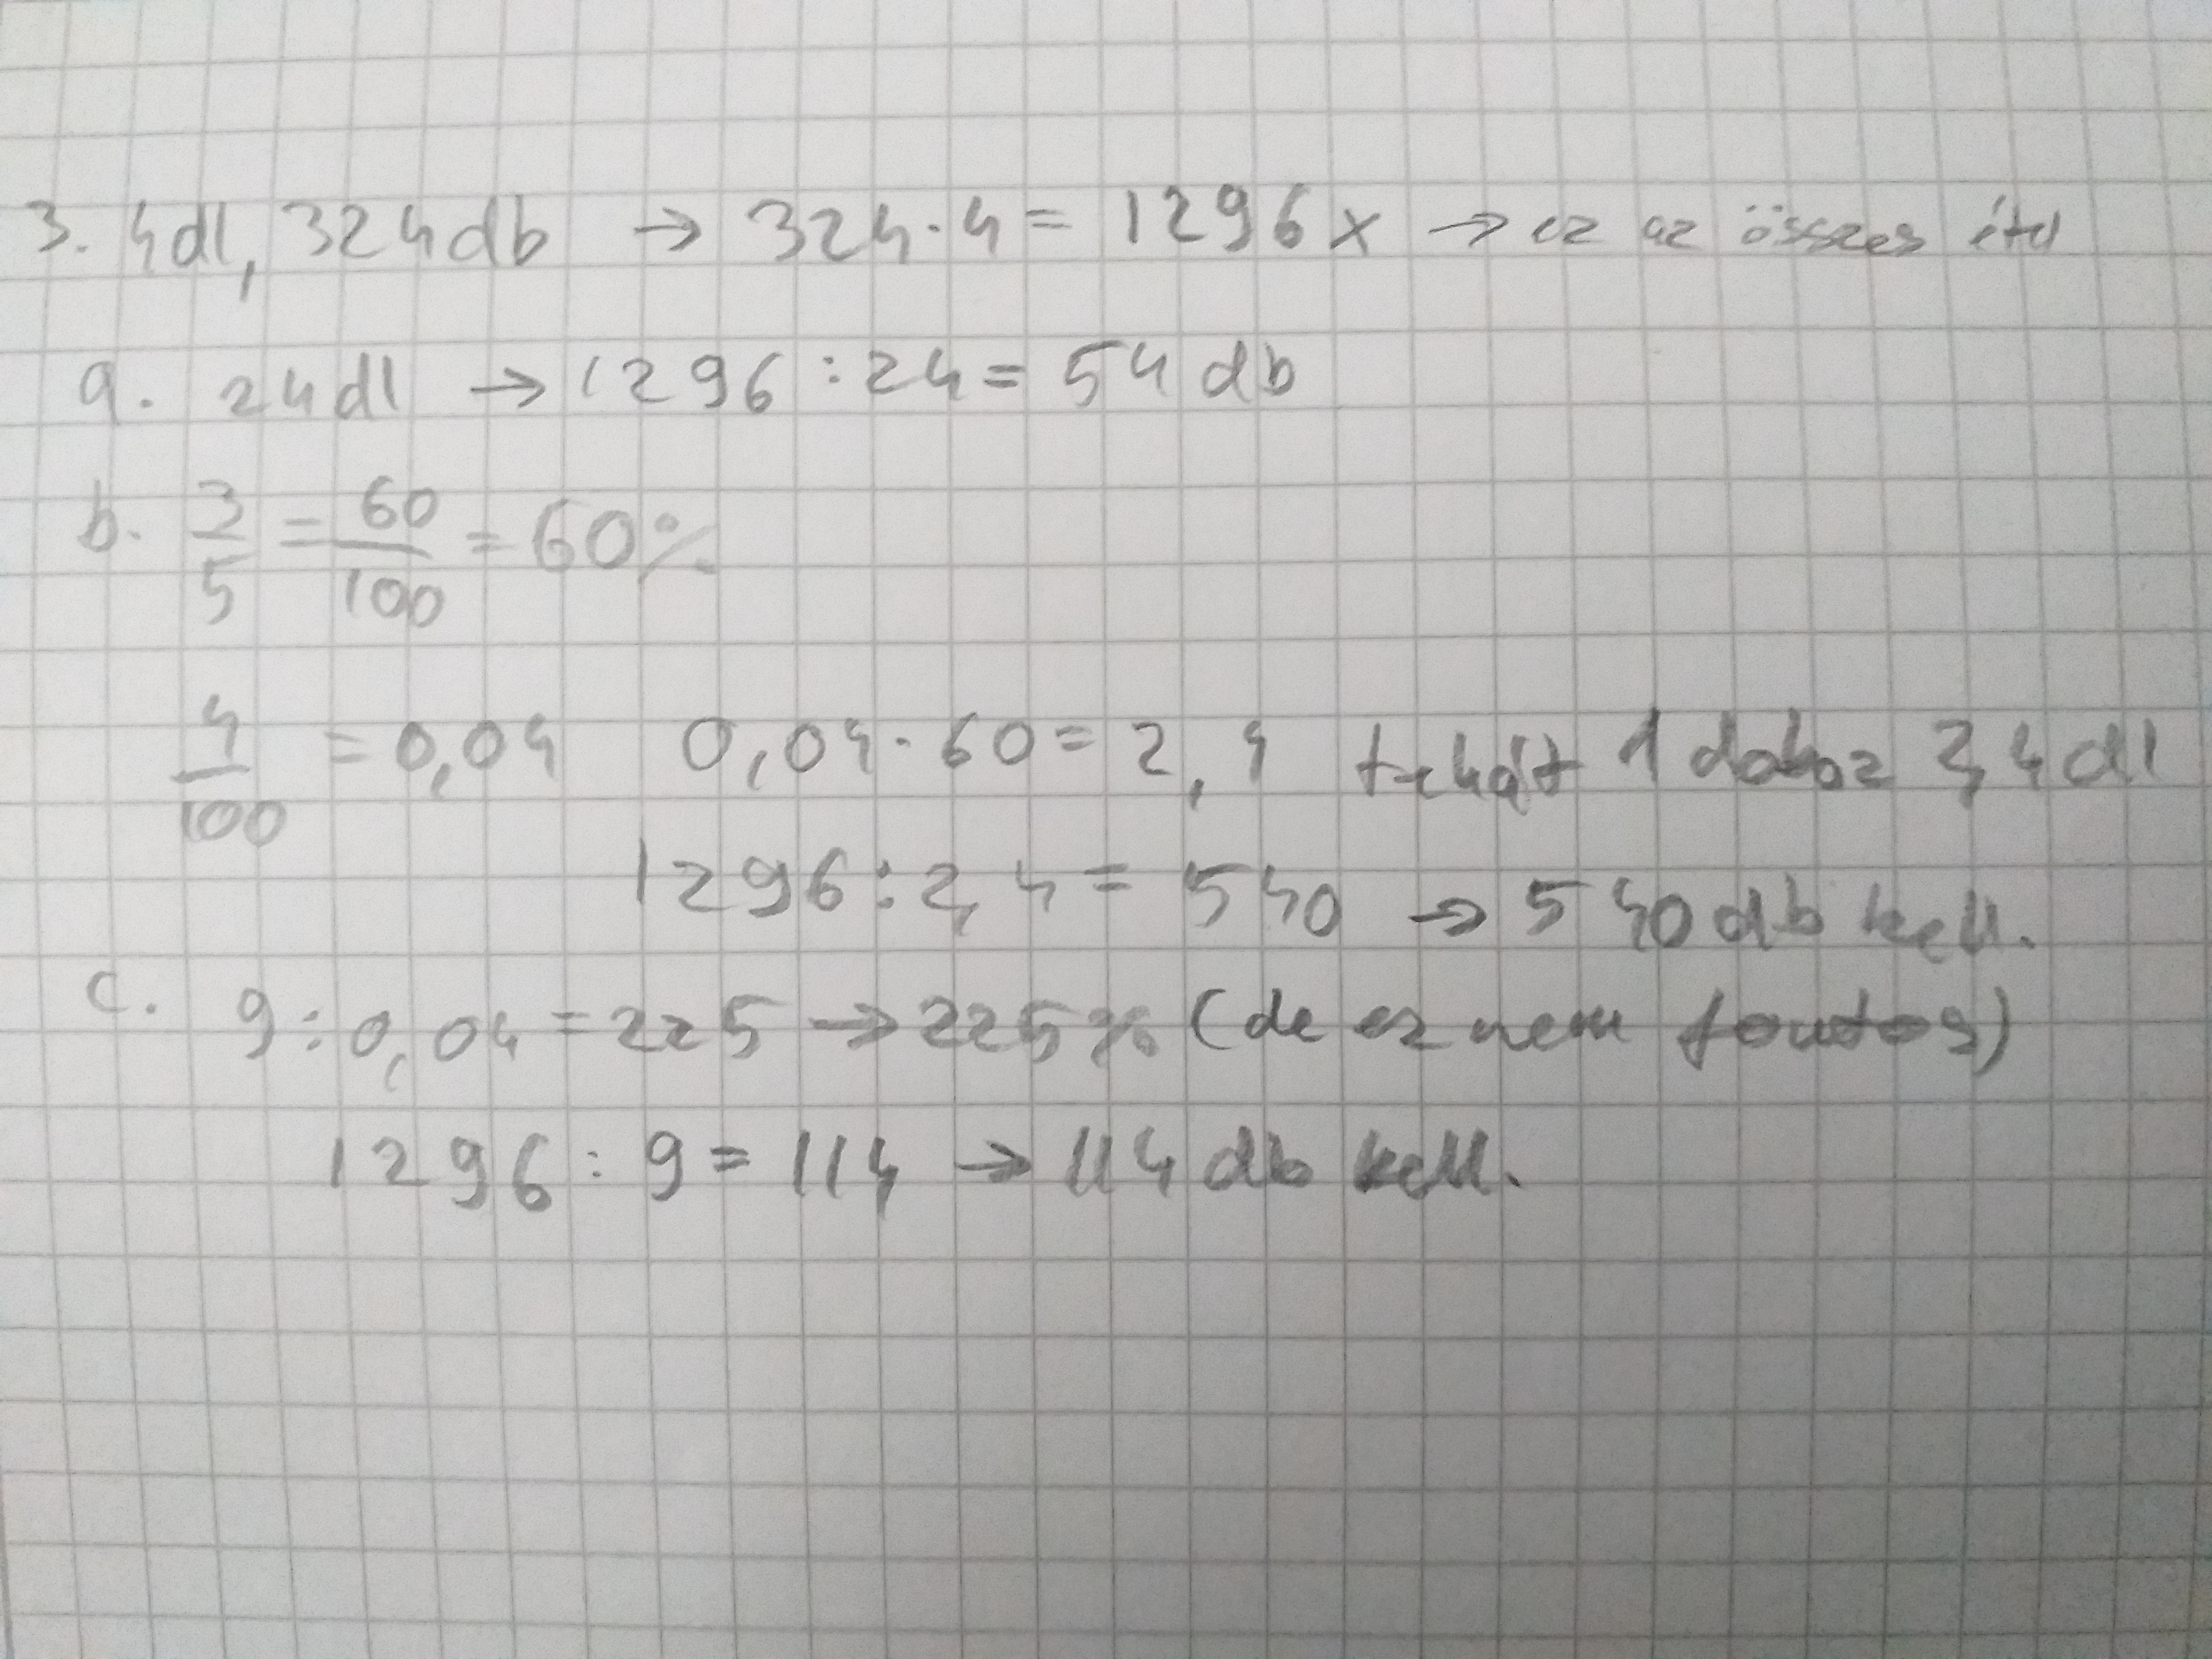 3. 4dl, 324db → 324·4 = 1296 x → ez az összes étel
a. 24dl → 1296 : 24 = 54 db
b. 3/5 = 60/100 = 60%
4/100 = 0,04 0,04·60 = 2,4 tehát 1 doboz 2,4 dl
1296 : 2,4 = 540 → 540 db kell.
c. 9 : 0,04 = 225 → 225% (de ez nem fontos)
1296 : 9 = 114 → 114 db kell.